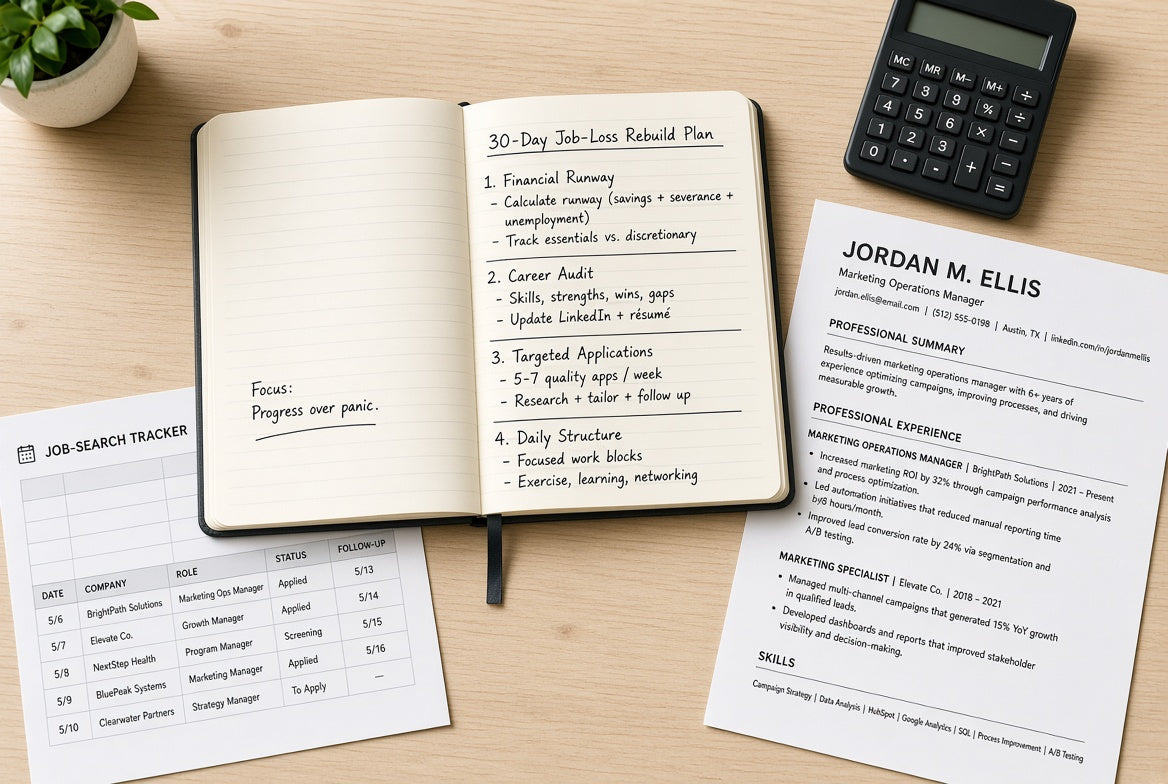 30-Day Job-Loss Rebuild Plan
1. Financial Runway
- Calculate runway (savings + severance +
unemployment)
- Track essentials vs. discretionary
2. Career Audit
- Skills, strengths, wins, gaps
- Update LinkedIn + résumé
3. Targeted Applications
- 5-7 quality apps / week
- Research + tailor + follow up
4. Daily Structure
- Focused work blocks
- Exercise, learning, networking
Focus:
Progress over panic.
JOB-SEARCH TRACKER
DATE COMPANY ROLE STATUS FOLLOW-UP
5/6 BrightPath Solutions Marketing Ops Manager Applied 5/13
5/7 Elevate Co. Growth Manager Applied 5/14
5/8 NextStep Health Program Manager Screening 5/15
5/9 BluePeak Systems Marketing Manager Applied 5/16
5/10 Clearwater Partners Strategy Manager To Apply —
MC MR M− M+ ÷
7 9 % ÷
4 5 6 × −
1 2 3 + −
0 · - =
JORDAN M. ELLIS
Marketing Operations Manager
jordan.ellis@email.com | (512) 555-0198 | Austin, TX | linkedin.com/in/jordanmellis
PROFESSIONAL SUMMARY
Results-driven marketing operations manager with 6+ years of
experience optimizing campaigns, improving processes, and driving
measurable growth.
PROFESSIONAL EXPERIENCE
MARKETING OPERATIONS MANAGER | BrightPath Solutions | 2021 – Present
• Increased marketing ROI by 32% through campaign performance analysis
and process optimization.
• Led automation initiatives that reduced manual reporting time
by8 hours/month.
• Improved lead conversion rate by 24% via segmentation and
A/B testing.
MARKETING SPECIALIST | Elevate Co. | 2018 – 2021
• Managed multi-channel campaigns that generated 15% YoY growth
in qualified leads.
• Developed dashboards and reports that improved stakeholder
visibility and decision-making.
SKILLS
Campaign Strategy | Data Analysis | HubSpot | Google Analytics | SQL | Process Improvement | A/B Testing